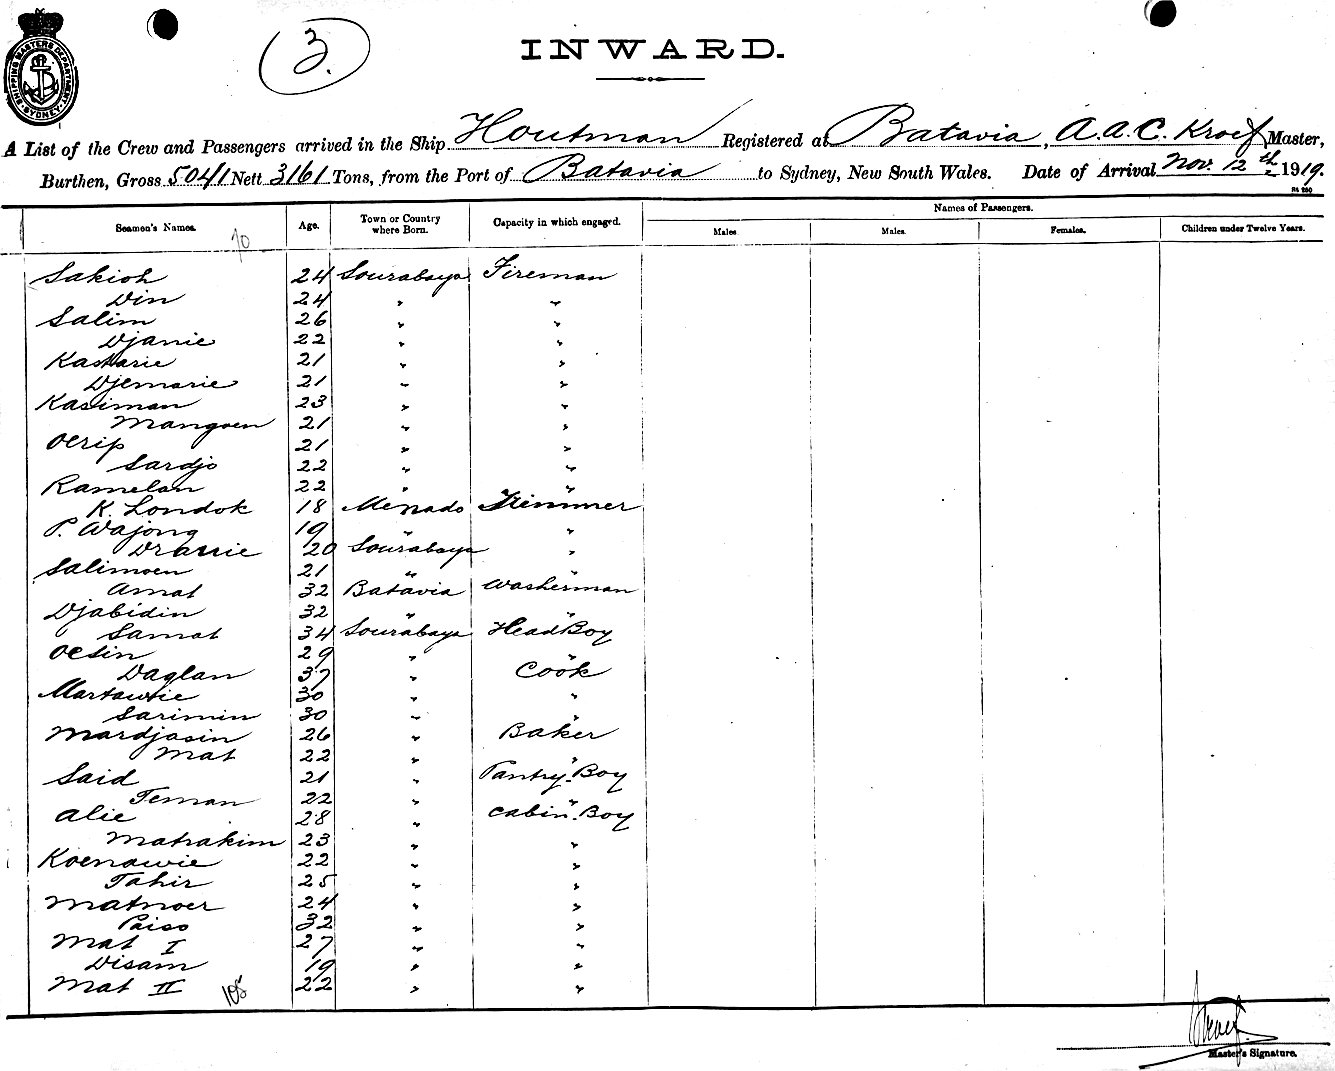 SHIPPING MASTERS DEPARTMENT SYDNEY
3.
INWARD.
A List of the Crew and Passengers arrived in the Ship Houtman Registered at Batavia, A.A.C. Kroef Master,
Burthen, Gross 5041 Nett 3161 Tons, from the Port of Batavia to Sydney, New South Wales. Date of Arrival Nov. 12th 1919.
Names of Passengers.
Seamen's Names. Age. Town or Country where Born. Capacity in which engaged. Males. Males. Females. Children under Twelve Years.
70
Sakioh 24 Sourabaya Fireman
Din 24 " "
Salim 26 " "
Djanie 22 " "
Kastarie 21 " "
Djemarie 21 " "
Kasiman 23 " "
Mangoen 21 " "
Oerip 21 " "
Sardjo 22 " "
Ramelan 22 " "
K. Londok 18 Menado Trimmer
P. Wajong 19 " "
Drassie 20 Sourabaya "
Salimoen 21 " "
Amat 32 Batavia Washerman
Djabidin 32 " "
Samat 34 Sourabaya Head Boy
Oesin 29 " "
Daglan 37 " Cook
Martawie 30 " "
Sarimin 30 " "
Mardjasin 26 " Baker
Mat 22 " "
Said 21 " Pantry-Boy
Teman 22 " "
Alie 28 " Cabin-Boy
Matrakim 23 " "
Koenawie 22 " "
Tahir 25 " "
Matnoer 24 " "
Paiso 32 " "
Mat I 27 " "
Disam 19 " "
Mat II 22 " "
105
Kroef
Master's Signature.